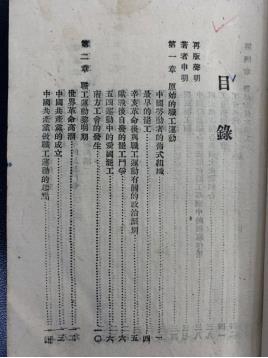 目錄
再版聲明
著者申明
第一章 原始的職工運動
中國勞動者的舊式組織………一
最早的罷工………四
辛亥革命後與職工運動有關的政治派別………五
歐戰後自發的罷工鬥爭………六
五四運動中的愛國罷工………六
南方工會的發生………一〇
第二章 職工運動黎明期
世界革命高潮………一二
中國共產黨的成立………一三
中國共產黨做職工運動的起點………一四